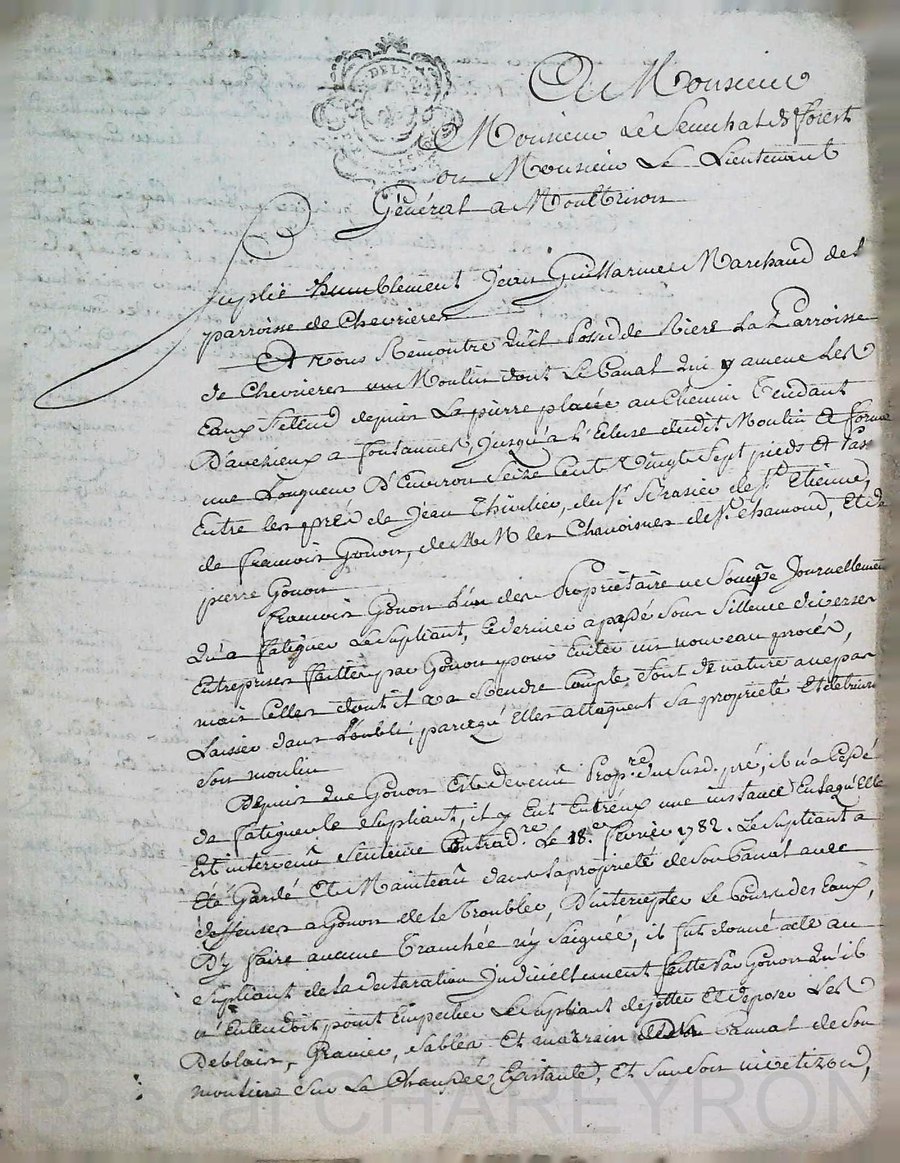 A Monsieur
Monsieur Le Senechal de fforest
ou Monsieur Le Lieutenant
Général a Montbrison
Suplie humblement Jean Guillarme Marchand de la
parroisse de Chevrieres
Et vous Remontre qu'il Possedde Riere La Parroisse
de Chevrieres un Moulin dont Le Canal qui y amene Les
Eaux s'ettend depuis La pierre placée au Chemin Tendant
D'averieux a fontannes, jusqu'a L'Ecluse dudit Moulin et forme
une Longueur D'Environ Seize Cent Vingt Sept pieds et
Entre les prés de Jean Thivilier, du Sr. de St. Etienne,
de francois Gonon, de MM les Chanoines de St. Chamond, Et de
pierre Gonon
francois Gonon L'un des Propriétaire ne Songe Journellement
qu'a fatiguer Le Supliant, Ce dernier a passé Sous Sillence diverses
Entreprises faittes par Gonon pour Eviter un nouveau procés,
mais Celles dont il va Rendre Compte Sont de nature a ne pas
Laisser dans L'oubli, parcequ'Elles attaquent Sa proprieté Et
Son moulin
Depuis que Gonon Est devenû Propre. du Susd. pré, il n'a Cessé
de fatiguer le Supliant, il y Eut Entréux une instance Enlaqu'Elle
Est intervenû Sentence Contradre. Le 18e. fevrier 1782. Le Supliant a
été Gardé Et Maintenû dans la proprieté de Son Canal avec
deffenses a Gonon de le Troubler, D'intercepter Le Cours des Eaux,
D'y faire aucune Tranchée n'y Saignée, il fut donné acte au
Supliant de la declaration Judiciellement faitte par Gonon qu'il
n'Entendoit point Empecher Le Supliant de jetter Et deposer Les
Deblais, Gravier, Sables Et marrain Canal de Son
moulin Sur La Chaussée Existante, Et Sur Son
Pascal CHAREYRON